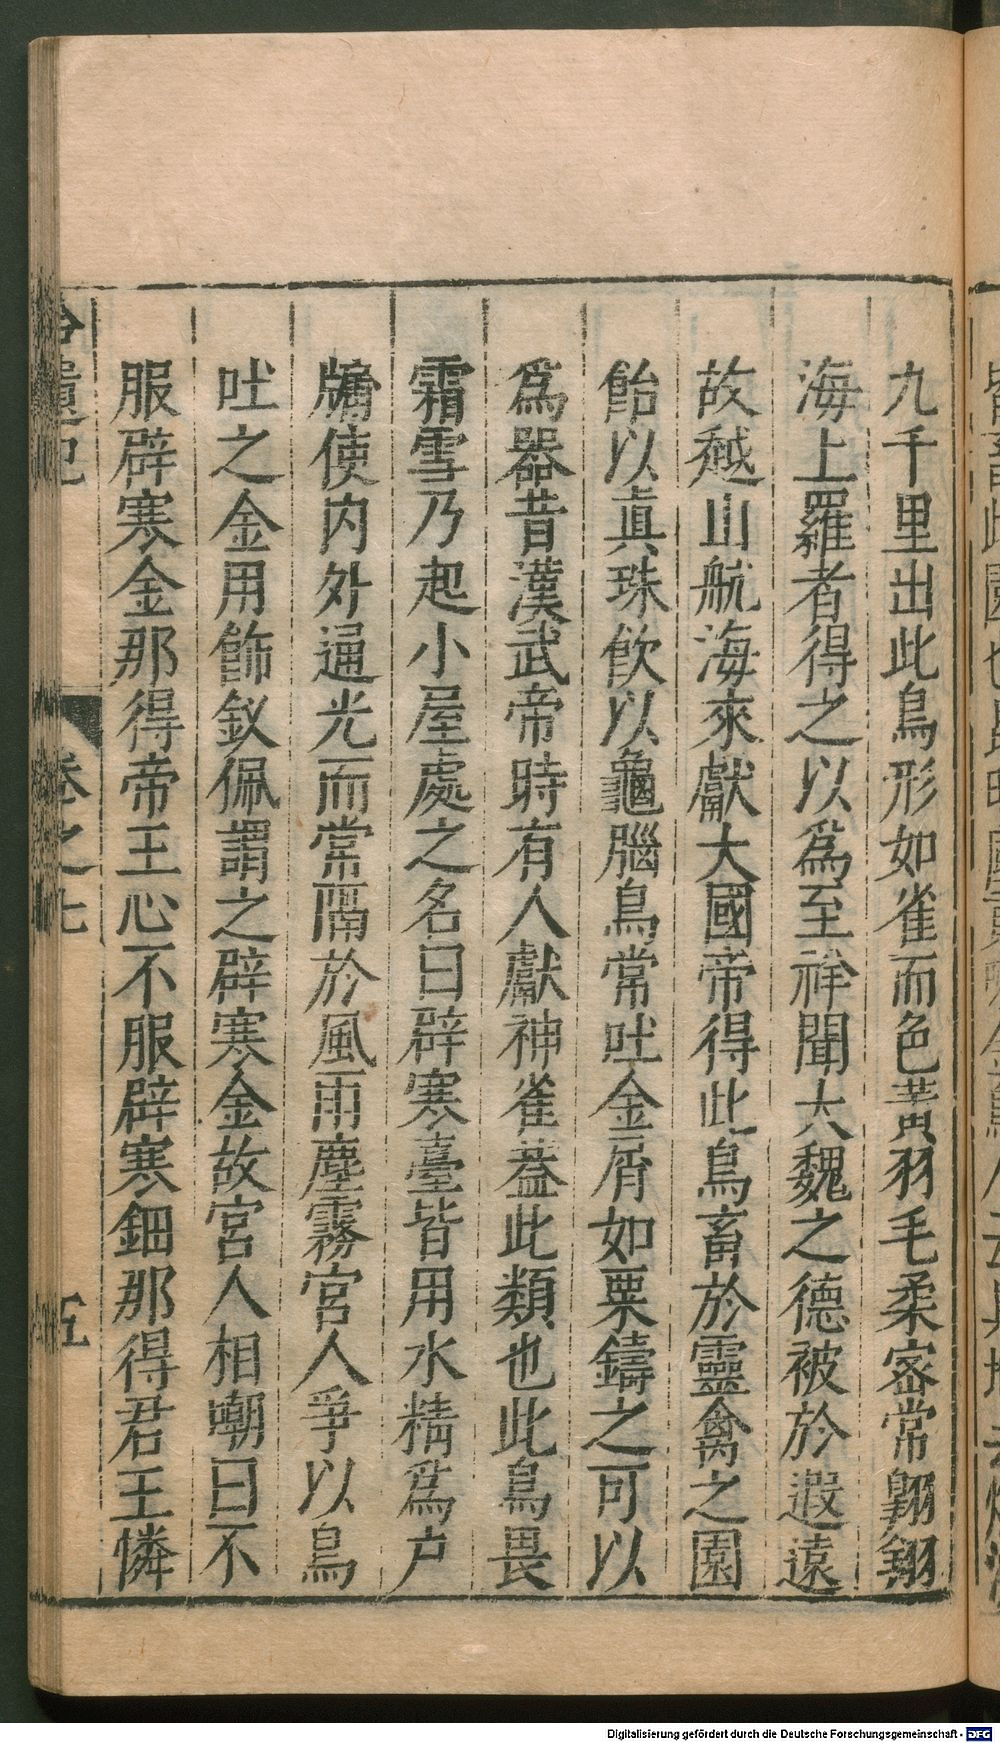 九千里出此鳥形如雀而色黄羽毛柔宻常翺翔
海上羅者得之以爲至祥聞大魏之德被於遐遠
故越山航海來獻大國帝得此鳥畜於靈禽之園
飴以眞珠飮以龜腦鳥常吐金屑如粟鑄之可以
爲器昔漢武帝時有人獻神雀葢此類也此鳥畏
霜雪乃起小屋處之名曰辟寒臺皆用水精爲户
牖使内外通光而常隔於風雨塵霧宮人爭以鳥
吐之金用飾釵佩謂之辟寒金故宮人相嘲曰不
服辟寒金那得帝王心不服辟寒鈿那得君王憐
拾遺記 卷之七 五
Digitalisierung gefördert durch die Deutsche Forschungsgemeinschaft - DFG